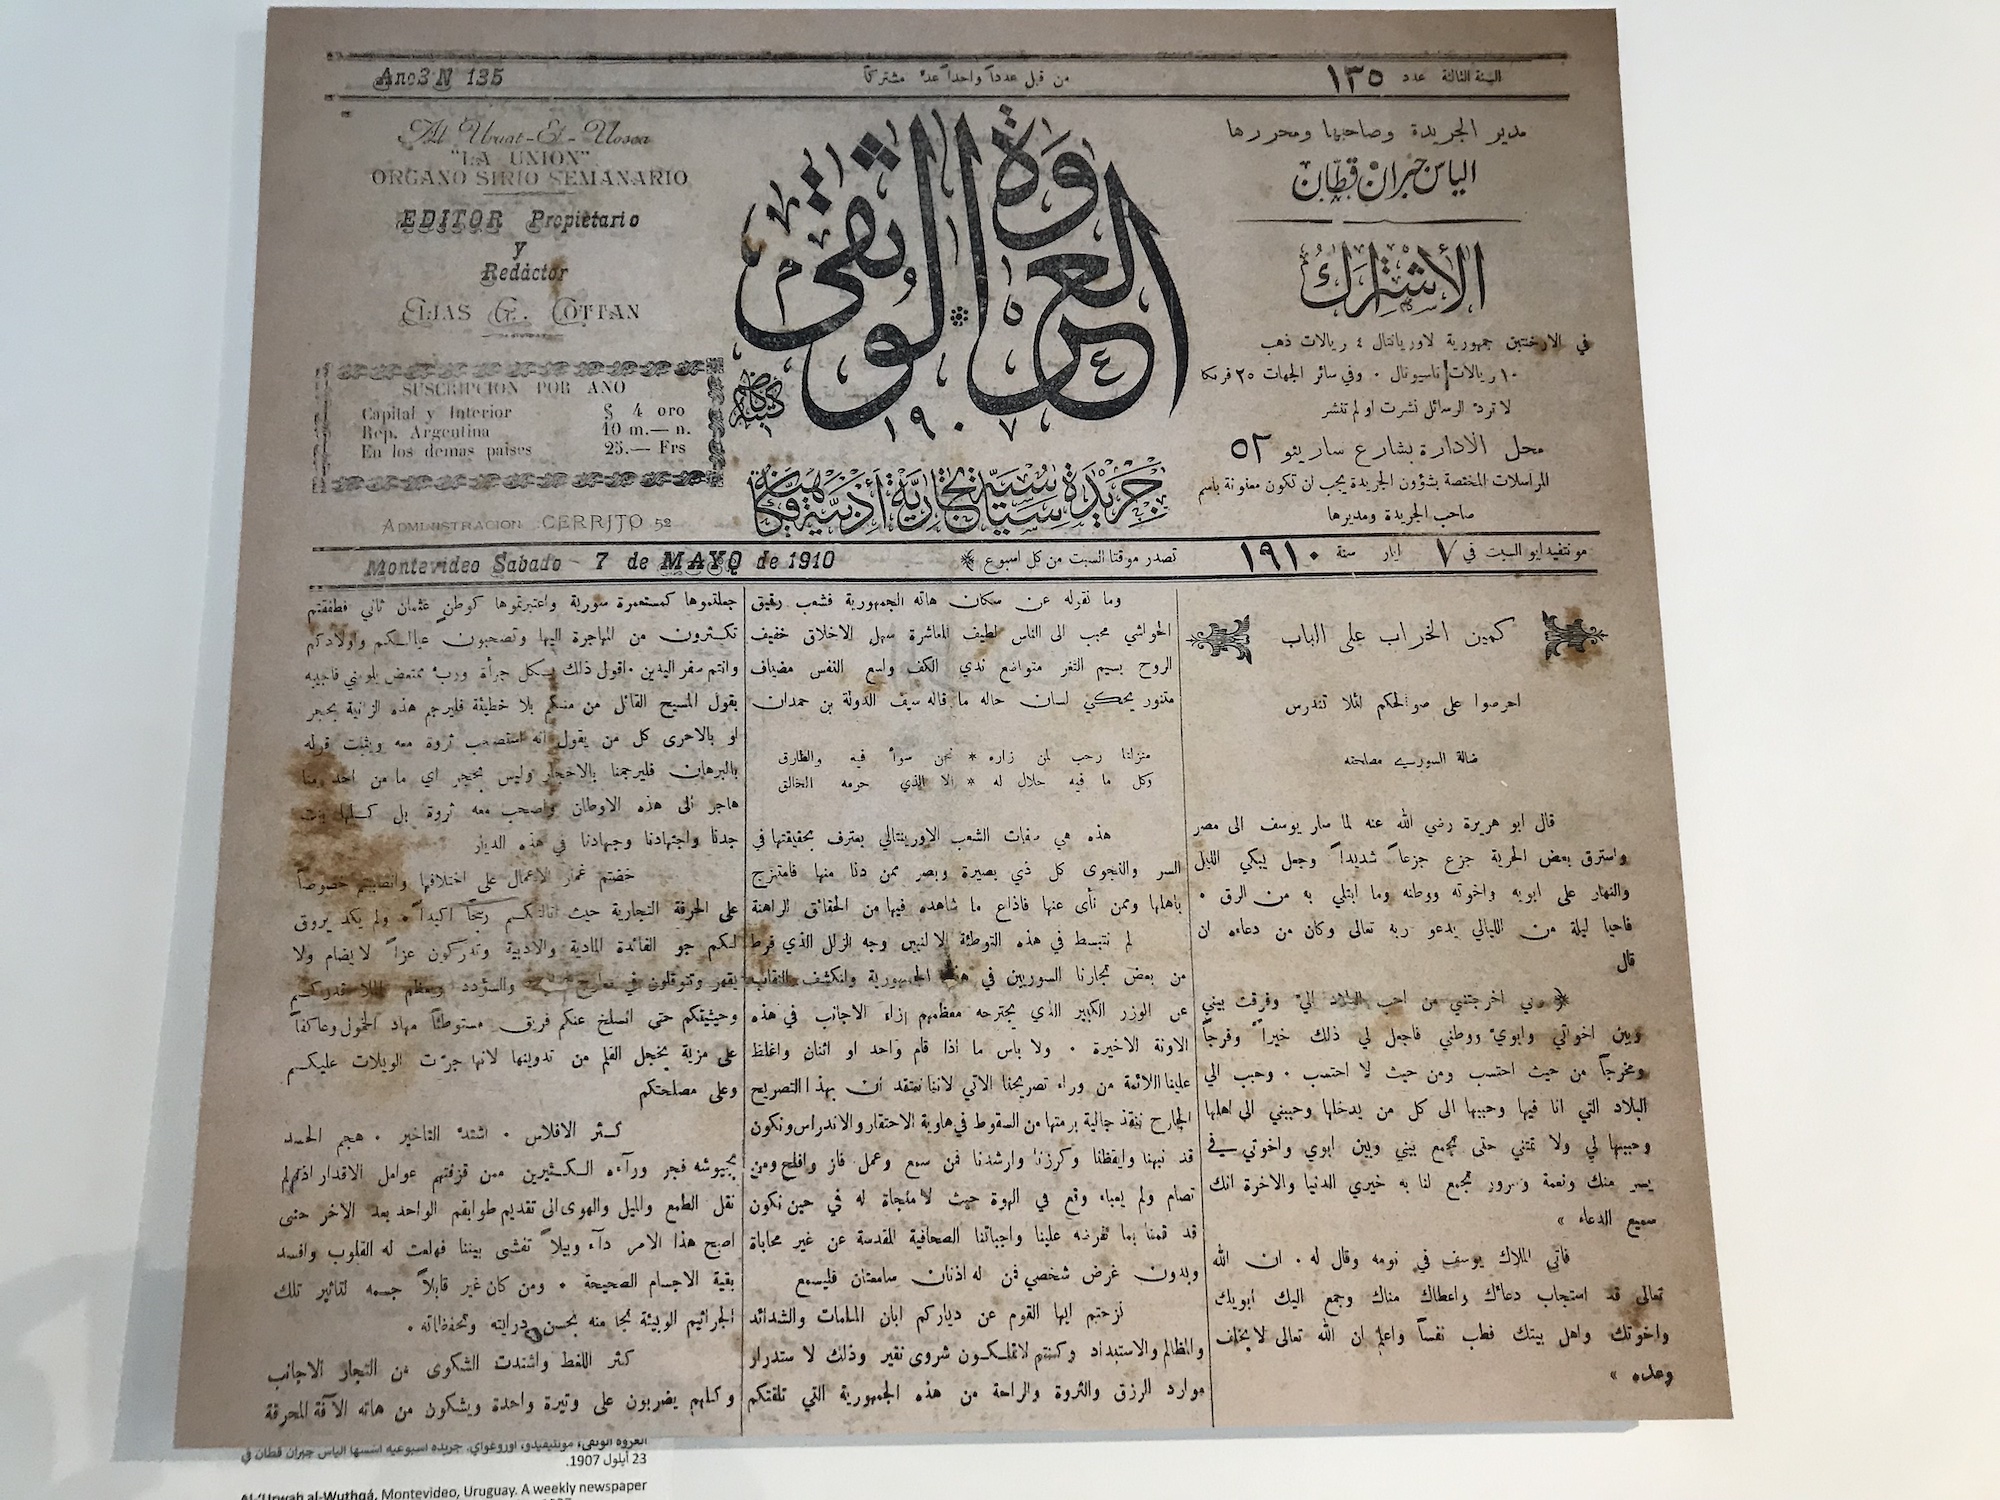 السنة الثالثة عدد ١٣٥
من قبل عدداً واحداً عدّ مشتركاً
Ano3 N 135
مدير الجريدة وصاحبها ومحررها
الياس جبران قطّان
الاشتراك
في الارجنتين جمهورية لاوريانتال ٤ ريالات ذهب
١٠ ريالات ناسيونال ٠ وفي سائر الجهات ٢٥ فرنكا
لا تردّ الرسائل نشرت او لم تنشر
محل الادارة بشارع ساريتو ٥٢
المراسلات المختصة بشؤون الجريدة يجب ان تكون معنونة باسم
صاحب الجريدة ومديرها
العروة الوثقى
١٩٠٧
جريدة سياسية تجارية أدبية فكاهية
Al Uruat-El-Uosca
"LA UNION"
ORGANO SIRIO SEMANARIO
EDITOR Propietario
y
Redáctor
ELIAS G. COTTAN
SUSCRIPCION POR ANO
Capital y Interior $ 4 oro
Rep. Argentina 10 m.— n.
En los demas paises 25.— Frs
ADMINISTRACION CERRITO 52
مونتفيدايو السبت في ٧ ايار سنة ١٩١٠
تصدر موقتا السبت من كل اسبوع
Montevideo Sabado - 7 de MAYO de 1910
كمين الخراب على الباب
احرصوا على صوالحكم لئلا تندرس
ضالة السوري مصلحته
قال ابو هريرة رضي الله عنه لما سار يوسف الى مصر
واسترق بعض الحرية جزع جزعاً شديداً وجعل يبكي الليل
والنهار على ابويه واخوته ووطنه وما ابتلي به من الرق ٠
فاحيا ليلة من الليالي يدعو ربه تعالى وكان من دعاءه ان
قال
ربي اخرجتني من احب البلاد اليّ وفرقت بيني
وبين اخوتي وابويّ ووطني فاجعل لي ذلك خيراً وفرجاً
ومخرجاً من حيث احتسب ومن حيث لا احتسب ٠ وحبب الي
البلاد التي انا فيها وحببها الى كل من يدخلها وحببني الى اهلها
وحببها لي ولا تمتني حتى تجمع بيني وبين ابوي واخوتي في
يسر منك ونعمة وسرور تجمع لنا به خيري الدنيا والاخرة انك
سميع الدعاء »
فاتي الملاك يوسف في نومه وقال له ٠ ان الله
تعالى قد استجاب دعائك واعطاك مناك وجمع اليك ابويك
واخوتك واهل بيتك فطب نفساً واعلم ان الله تعالى لا يخلف
وعده »
وما نقوله عن سكان هاته الجمهورية فشعب رقيق
الحواشي محبب الى الناس لطيف المعاشرة سهل الاخلاق خفيف
الروح بسيم الثغر متواضع ندي الكف واسع النفس مضياف
متنور يحكي لسان حاله ما قاله سيف الدولة بن حمدان
منزلنا رحب لمن زاره * نحن سواً فيه والطارق
وكل ما فيه حلال له * الا الذي حرمه الخالق
هذه هي صفات الشعب الاورينتالي يعترف بحقيقتها في
السر والنجوى كل ذي بصيرة وبصر ممن دنا منها فامتزج
باهلها وممن نأى عنها فاذاع ما شاهده فيها من الحقائق الراهنة
لم نتبسط في هذه التوطئة الا لنبين وجه الزلل الذي فرط
من بعض تجارنا السوريين في هذه الجمهورية وانكشف النقاب
عن الوزر الكبير الذي يجترحه معظمهم إزاء الاجانب في هذه
الاونة الاخيرة ٠ ولا باس ما اذا قام واحد او اثنان واغلظ
علينا اللائمة من وراء تصريحنا الاتي لاننا نعتقد ان بهذا التصريح
الجارح ننقذ جالية برمتها من السقوط في هاوية الاحتقار والاندراس ونكون
قد نبهنا وايقظنا وكرزنا وارشدنا فمن سمع وعمل فاز وافلح ومن
تصام ولم يعباء وقع في الهوة حيث لا منجاة له في حين نكون
قد قمنا بما تفرضه علينا واجباتنا الصحافية المقدسة عن غير محاباة
وبدون غرض شخصي فمن له اذنان سامعتان فليسمع
نزحتم ايها القوم عن دياركم ابان الملمات والشدائد
والمظالم والاستبداد وكنتم لا تملكون شروى نقير وذلك لا ستدرار
موارد الرزق والثروة والراحة من هذه الجمهورية التي تلقتكم
جعلتموها كمستعمرة سورية واعتبرتموها كوطن عثمان ثاني فطفقتم
تكثرون من المهاجرة اليها وتصحبون عيالكم واولادكم
وانتم سفر اليدين ٠ اقول ذلك بكل جرأة وربّ ممتعض يلومني فاجيبه
بقول المسيح القائل من منكم بلا خطيئة فليرجم هذه الزانية بحجر
او بالاحرى كل من يقول انه استصحب ثروة معه ويثبت قوله
بالبرهان فليرجمنا بالاحجار وليس بحجر اي ما من احد منا
هاجر الى هذه الاوطان واصحب معه ثروة بل كلها بنت
جدنا واجتهادنا وجهادنا في هذه الديار
خضتم غمار الاعمال على اختلافها وانصببتم خصوصاً
على الحرفة التجارية حيث انالتكم ربحاً اكيداً ٠ ولم يكد يروق
لكم جو الفائدة المادية والادبية وتدركون عزاً لا يضام ولا
يقهر وتتوقلون في معارج والسؤدد ويعظم الملا قدركم
وحيثيتكم حتى انسلخ عنكم فريق مستوطئاً مهاد الخمول وعاكفاً
على مزية يخجل القلم من تدوينها لانها جرّت الويلات عليكم
وعلى مصلحتكم
كثر الافلاس ٠ اشتدّ التاخير ٠ هجم الحسد
بجيوشه فجر ورآءه الكثيرين ممن قزفتهم عوامل الاقدار اذ لم
نقل الطمع والميل والهوى الى تقديم طوابقم الواحد بعد الاخر حتى
اصبح هذا الامر دآء وبيلاً تفشى بيننا فهلعت له القلوب وافسد
بقية الاجسام الصحيحة ٠ ومن كان غير قابلاً جسمه لتاثير تلك
الجراثيم الوبيئة نجا منه بحسن درايته وتحفظاته ٠
كثر اللغط واشتدت الشكوى من التجار الاجانب
وكلهم يضربون على وتيرة واحدة ويشكون من هاته الآفة المحرقة
العروة الوثقى، مونتيفيدو، اوروغواي. جريدة اسبوعية اسسها الياس جبران قطان في
23 أيلول 1907.
Al-'Urwah al-Wuthqá, Montevideo, Uruguay. A weekly newspaper